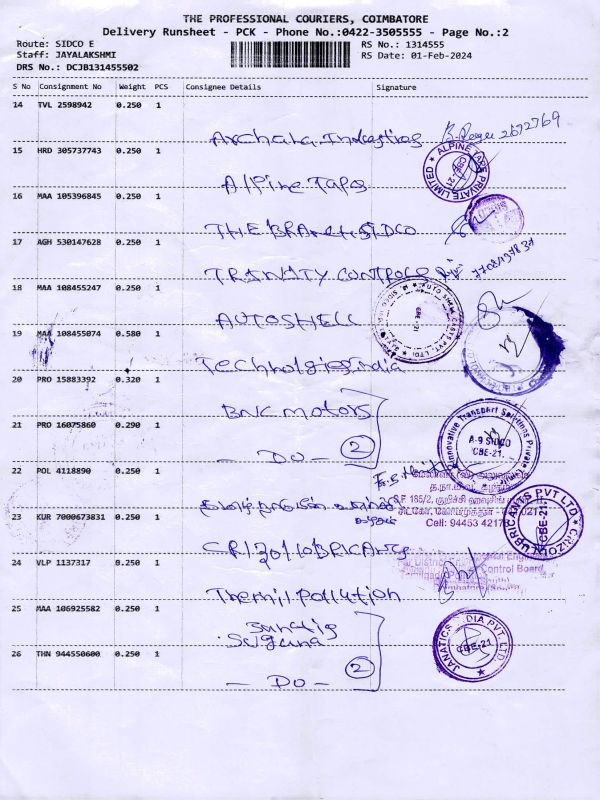 THE PROFESSIONAL COURIERS, COIMBATORE
Delivery Runsheet - PCK - Phone No.:0422-3505555 - Page No.:2
Route: SIDCO E
RS No.: 1314555
Staff: JAYALAKSHMI
RS Date: 01-Feb-2024
DRS No.: DCJB131455502
S No Consignment No Weight PCS Consignee Details Signature
14 TVL 2598942 0.250 1
Industries
2672769
15 HRD 305737743 0.250 1
Alpine Taps
ALPINE TAPS PRIVATE LIMITED
CBE-21
16 MAA 105396845 0.250 1
THE BRAnch SIDCO
17 AGH 530147628 0.250 1
TRINITY CONTROLS
18 MAA 108455247 0.250 1
AUTOSHELL
AUTO SHELL CASTS PVT LTD
CBE-21
19 MAA 108455074 0.580 1
Technolgies india
20 PRO 15883392 0.320 1
BNK motors
21 PRO 16075860 0.290 1
- DO - 2
Innovative Transport Solutions Private Limited
A-9 SIDCO
CBE-21.
22 POL 4118890 0.250 1
S.F 185/2,
Cell: 94453
23 KUR 7000673831 0.250 1
LUBRICANTS PVT LTD
CBE-21
24 VLP 1137317 0.250 1
Control Board,
Pollution
25 MAA 106925582 0.250 1
Suguna
26 THN 944550600 0.250 1
- DO - 2
JANATICS INDIA PVT LTD
CBE-21